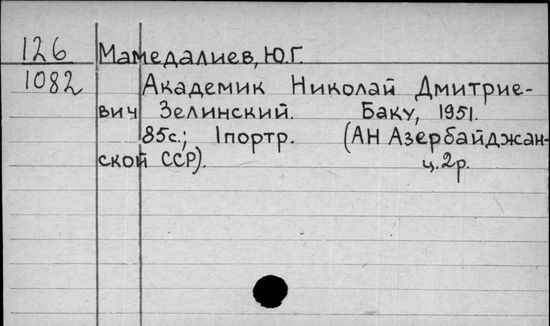 126 Мамедалиев, Ю.Г.
1082 Академик Николай Дмитрие-
вич Зелинский. Баку, 1951.
85с.; 1портр. (АН Азербайджан-
ской ССР). ц.2р.